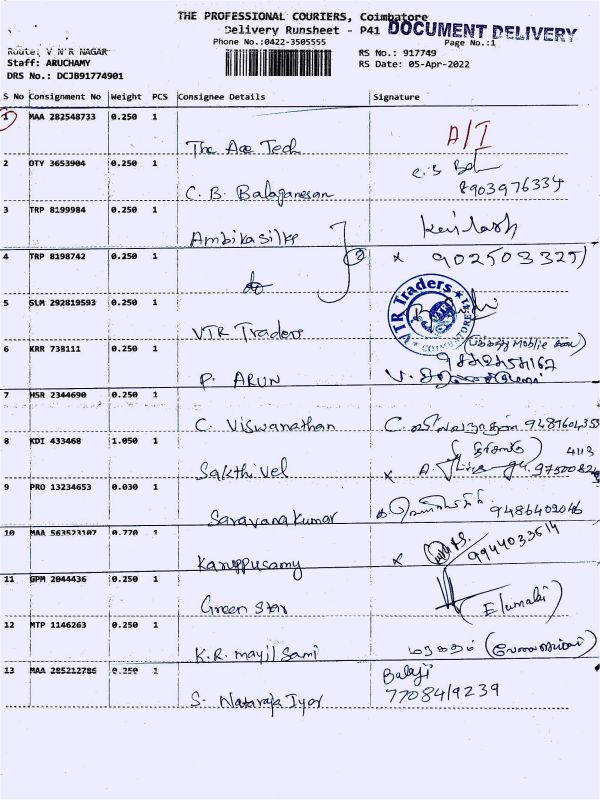 THE PROFESSIONAL COURIERS, Coimbatore
Delivery Runsheet - P41 DOCUMENT DELIVERY
Phone No.:0422-3505555 Page No.:1
Route: V N R NAGAR RS No.: 917749
Staff: ARUCHAMY RS Date: 05-Apr-2022
DRS No.: DCJB91774901
S No Consignment No Weight PCS Consignee Details Signature
1 MAA 282548733 0.250 1
The Ace Tech A/I
2 OTY 3653904 0.250 1
C. B. Balaganesan 8903976334
3 TRP 8199984 0.250 1
Ambika silks Kailash
4 TRP 8198742 0.250 1 x 9025033251
do
5 SLM 292819593 0.250 1
VTR Traders VTR Traders COIMBATORE
6 KRR 738111 0.250 1
P. ARUN
7 HSR 2344690 0.250 1
C. Viswanathan
8 KDI 433468 1.050 1
Sakthivel x
9 PRO 13234653 0.030 1
Saravanakumar 9486402046
10 MAA 563523107 0.770 1
Karuppusamy x 9944033514
11 GPM 2044436 0.250 1
Green Star (Elumalai)
12 MTP 1146263 0.250 1
K.R. Mayil Sami மரகதம்
13 MAA 285212786 0.250 1 Balaji
S. Nataraja Iyer 7708419239